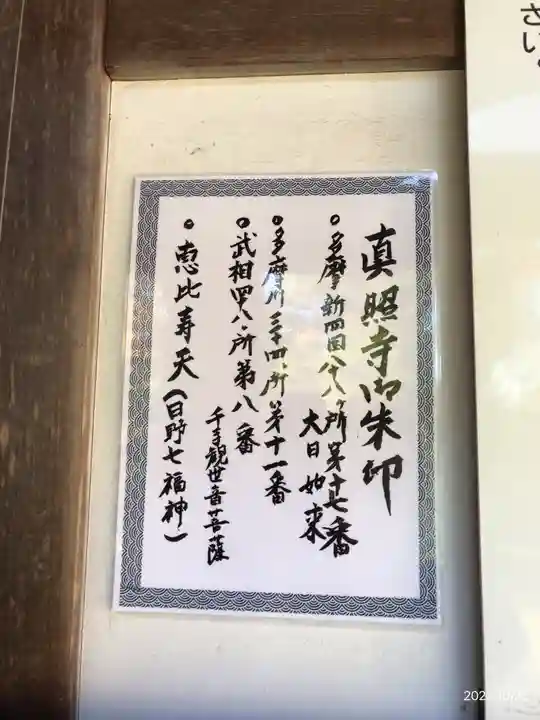 真照寺御朱印
• 多摩新四国八十八ヶ所第十七番
大日如来
• 多摩川三十四ヶ所第十一番
• 武相四八ヶ所第八番
千手観世音菩薩
• 恵比寿天(日野七福神)
さい。